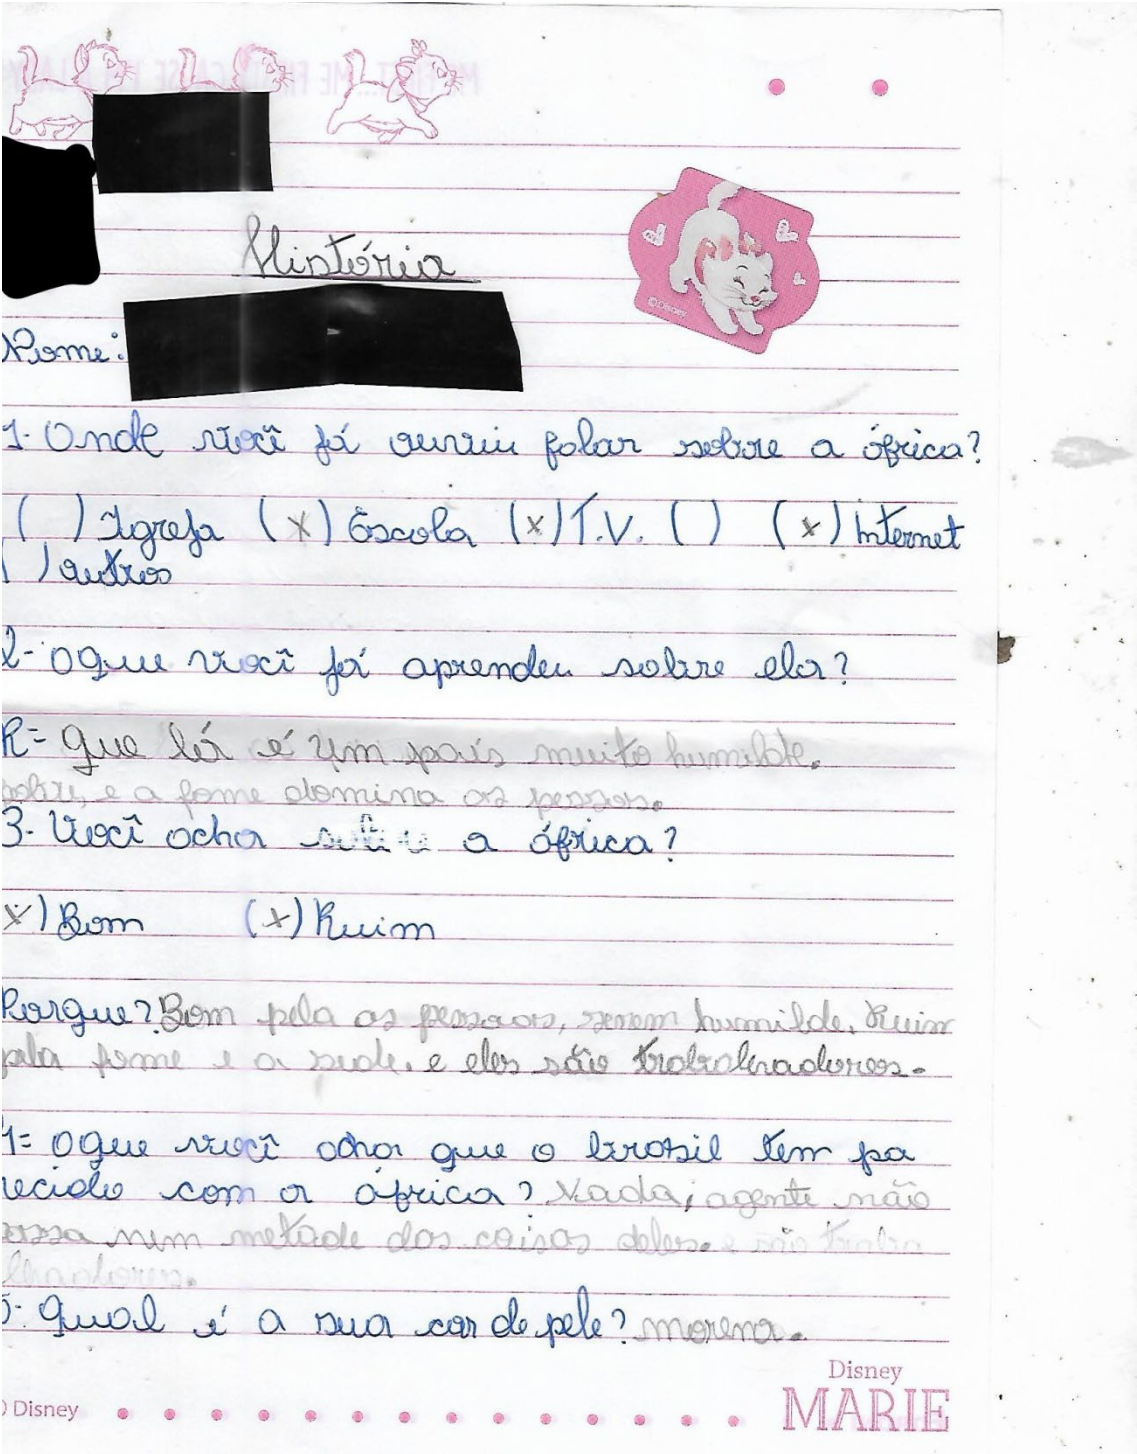 História
Nome:
1- Onde você já ouviu falar sobre a áfrica?
( ) Igreja (x) Escola (x) T.V. ( ) (x) Internet
( ) outros
2- oque você já aprendeu sobre ela?
R= que lá é um país muito humilde.
pobre, e a fome domina as pessoas.
3- Você acha a áfrica?
x) Bom (x) Ruim
Porque? Bom pela as pessoas, serem humilde. Ruim
pela fome e a sede. e eles são trabalhadores.
oque você acha que o brasil tem pa
recido com a áfrica? Nada, agente não
passa nem metade das coisas deles. e são traba
lhadores.
5- qual é a sua cor de pele? morena.
© Disney
Disney
MARIE
© Disney